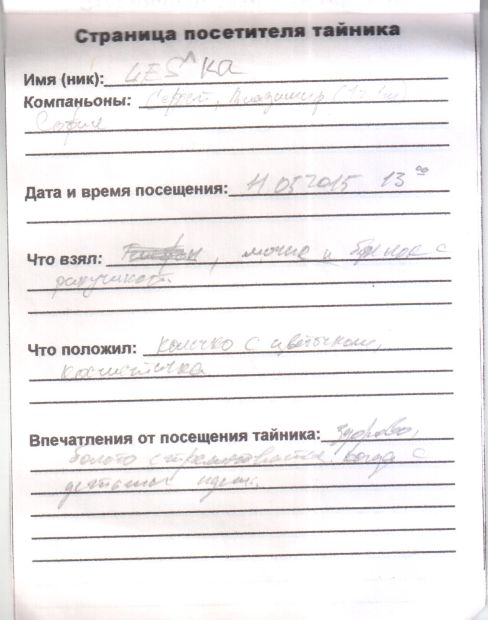 Страница посетителя тайника
Имя (ник): ЧЕS^ка
Компаньоны: Сергей, Владимир
София
Дата и время посещения: 11 05 2015 13 00
Что взял: , мочка и брелок с
ракушкой
Что положил: колечко с цветочком,
косметичка
Впечатления от посещения тайника: Здорово,
болото
детьми идёшь.